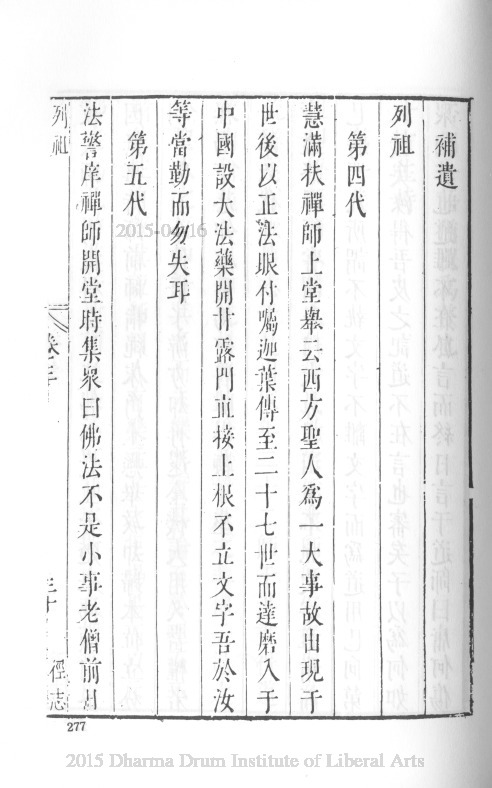 補遺
列祖
第四代
慧滿扶禪師上堂舉云西方聖人爲一大事故出現于
世後以正法眼付囑迦葉傳至二十七世而達磨入于
中國設大法藥開甘露門直接上根不立文字吾於汝
等當勤而勿失耳
第五代
法警庠禪師開堂時集衆曰佛法不是小事老僧前日
列祖
卷三
三十
徑志
277
2015-04-16
2015 Dharma Drum Institute of Liberal Arts